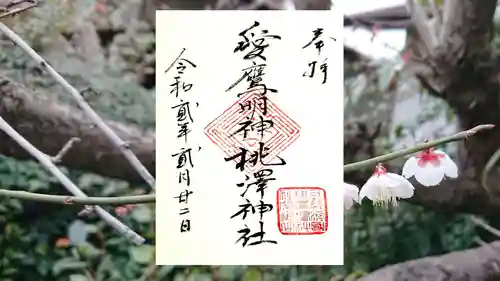 奉拝
愛鷹明神桃澤神社
令和貳年貳月廿二日